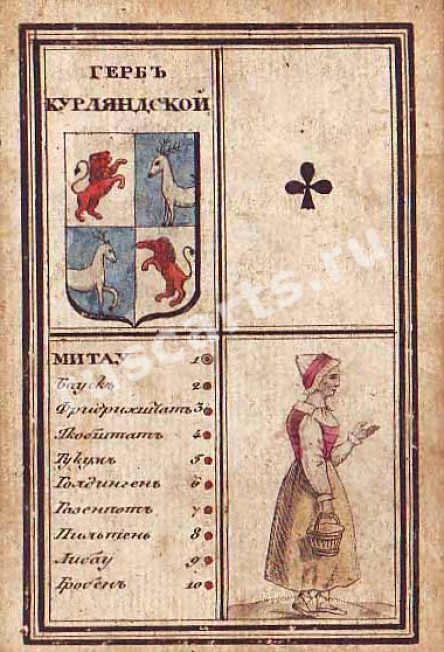 ГЕРБЪ
КУРЛЯНДСКОЙ
МИТАУ 1
Баускъ 2
Фридрихштатъ 3
Якобштатъ 4
Тукумъ 5
Голдингенъ 6
Газенпотъ 7
Пильтенъ 8
Либау 9
Гробенъ 10
ruscarts.ru